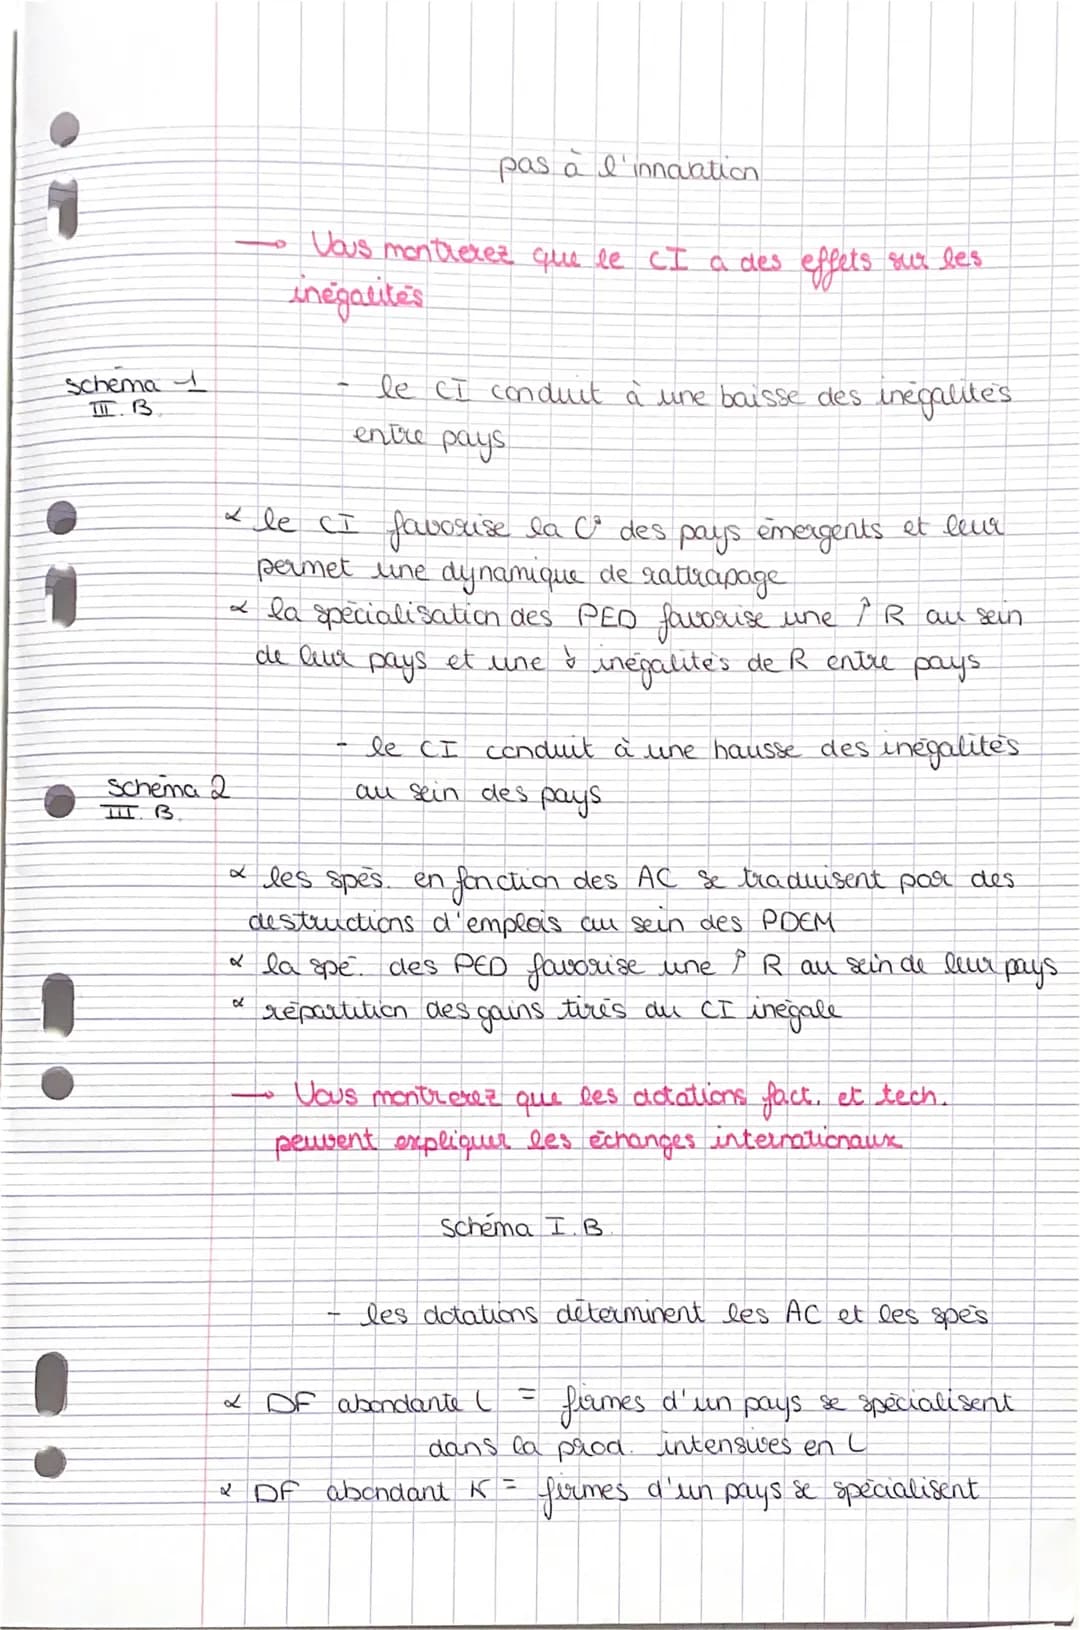 pas à l'innovation
→ Vous montrerez que le CI a des effets sur les
inégalités
schéma 1
III. B.
- le CI conduit à une baisse des inégalités
entre pays
α le CI favorise la C° des pays émergents et leur
permet une dynamique de rattrapage
α la spécialisation des PED favorise une ↑ R au sein
de leur pays et une ↓ inégalités de R entre pays
- le CI conduit à une hausse des inégalités
schéma 2
III. B.
au sein des pays
α les spés. en fonction des AC se traduisent par des
destructions d'emplois au sein des PDEM
α la spé. des PED favorise une ↑ R au sein de leur pays
α répartition des gains tirés du CI inégale
→ Vous montrerez que les dotations fact. et tech.
peuvent expliquer les échanges internationaux
Schéma I.B.
- les dotations déterminent les AC et les spés
α DF abondante L = firmes d'un pays se spécialisent
dans la prod. intensives en L
α DF abondant K = firmes d'un pays se spécialisent